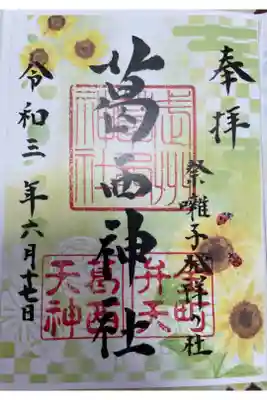 奉拝
祭囃子発祥の社
葛西神社
葛西
天神
弁天
令和三年六月十七日